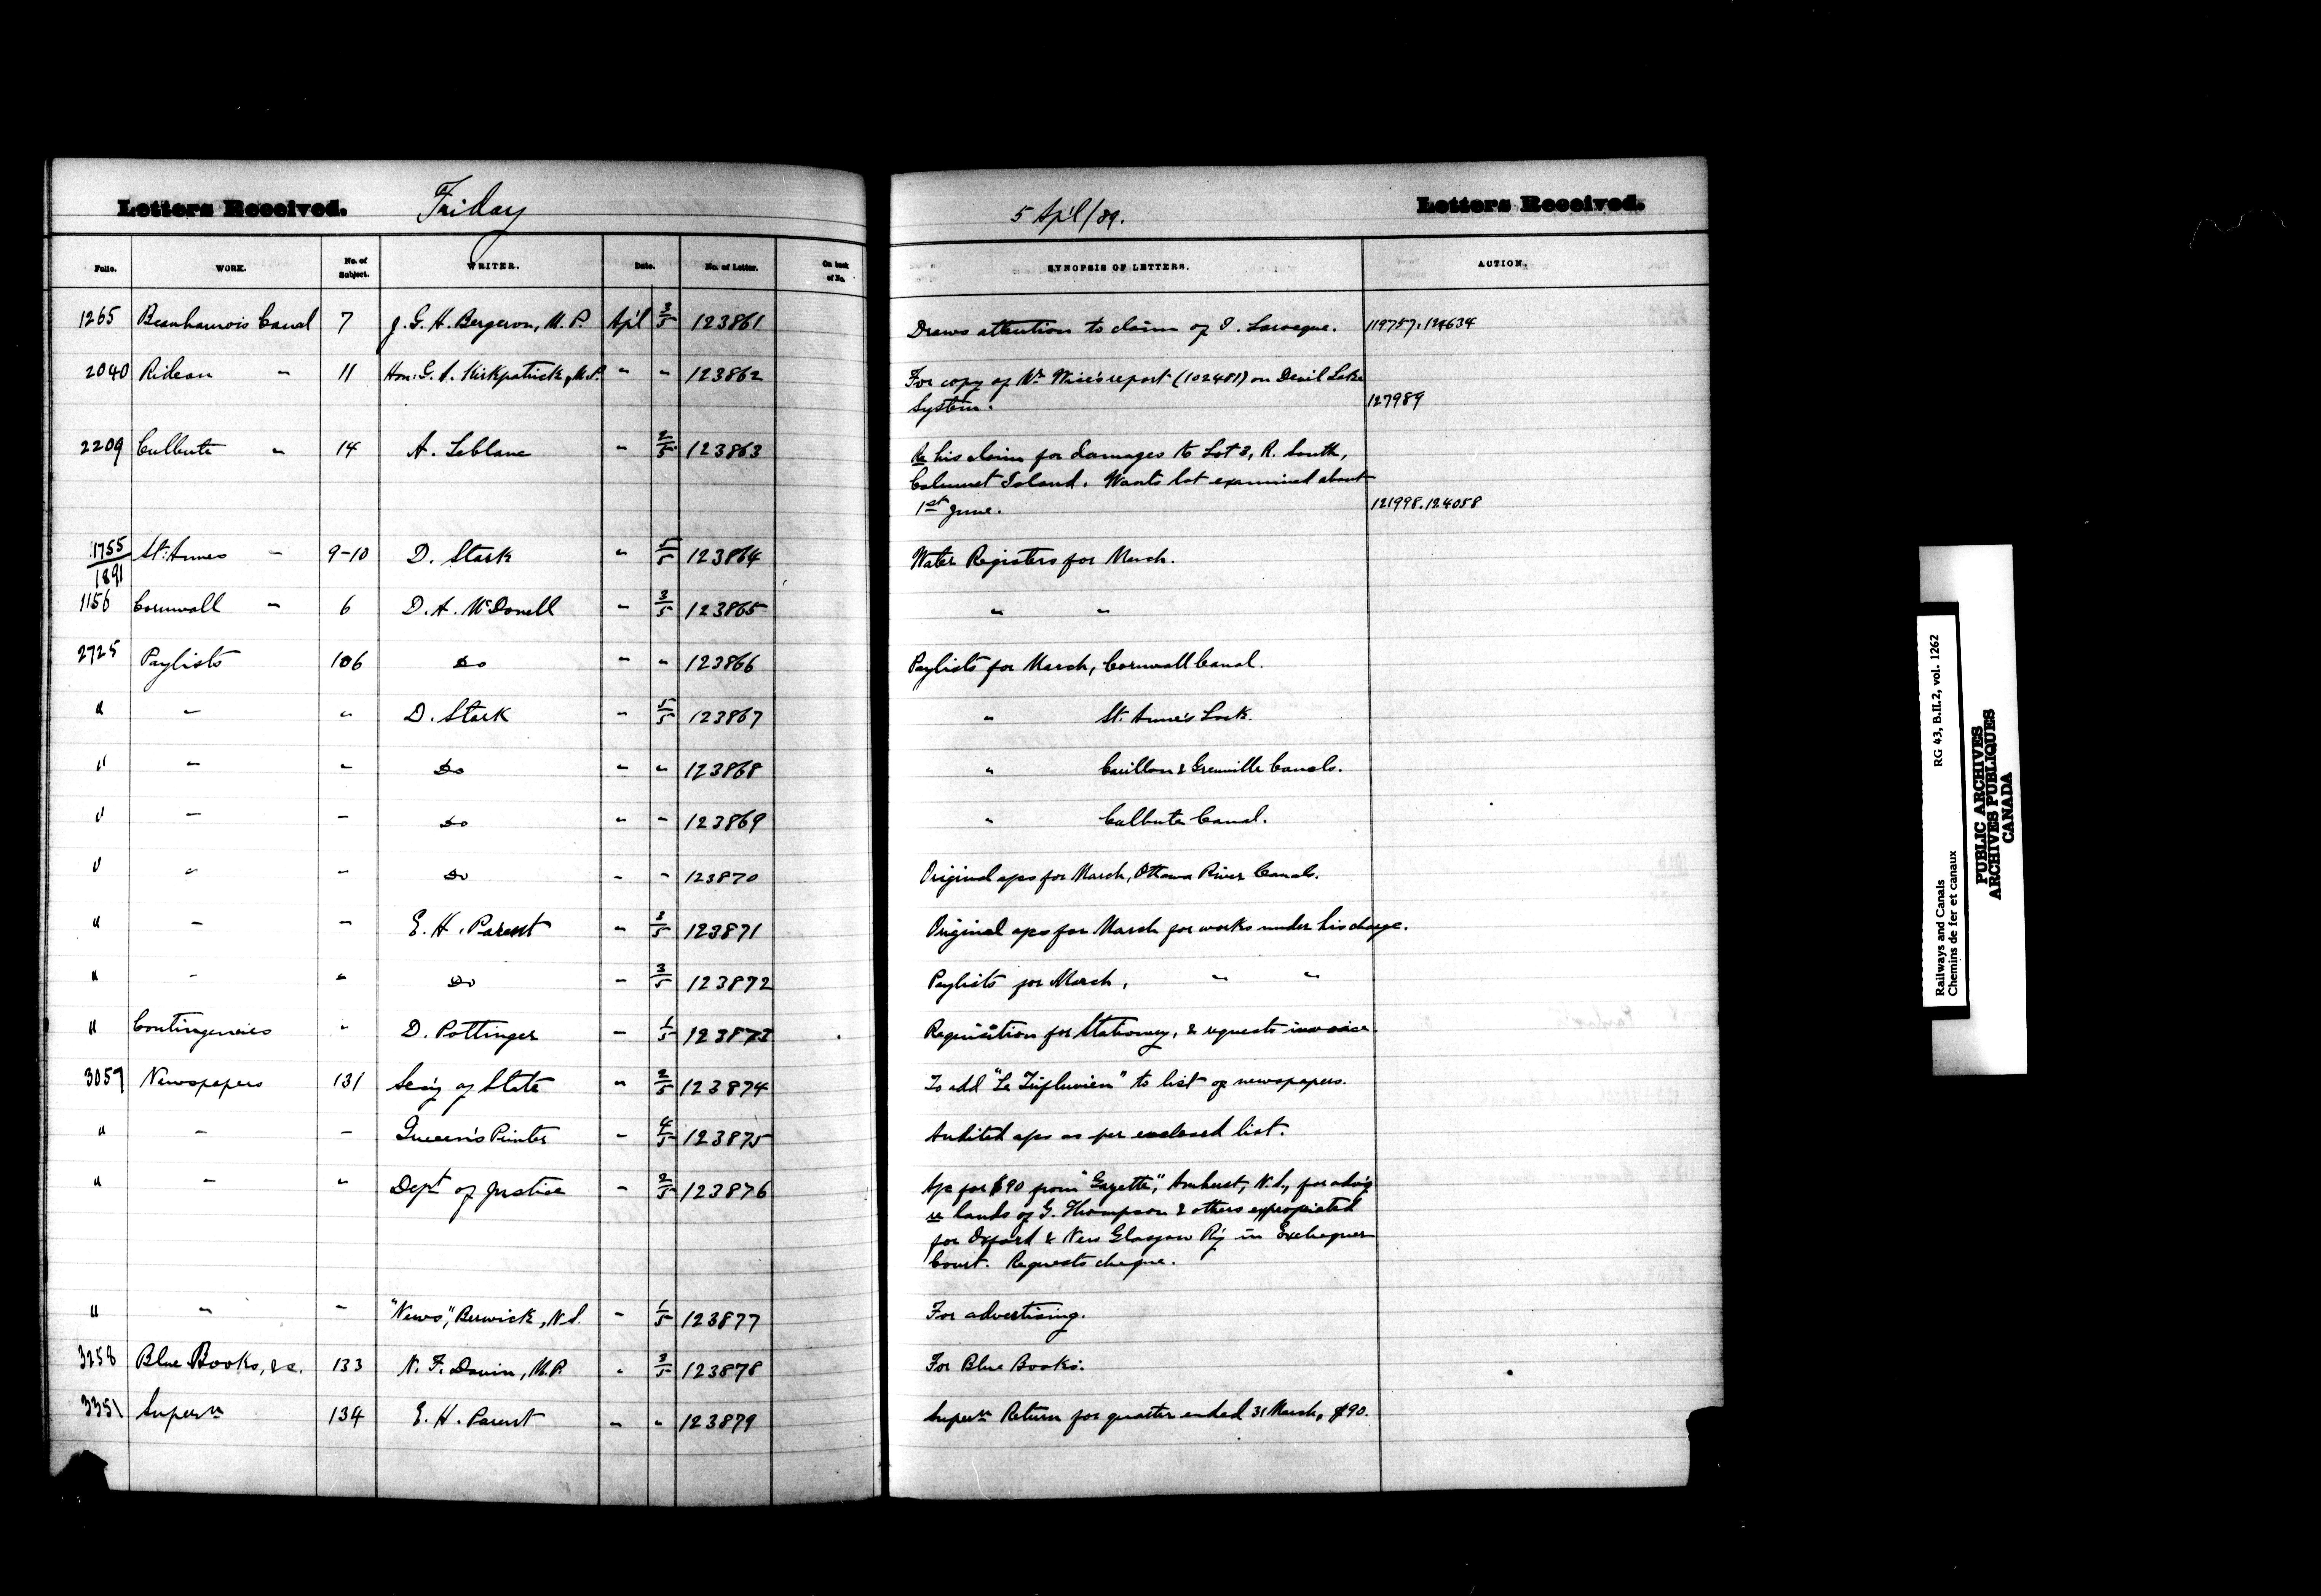 Letters Received. Friday
5 Ap'l/89. Letters Received.
Folio. WORK. No. of Subject. WRITER. Date. No. of Letter. On back of No. SYNOPSIS OF LETTERS. ACTION.
1265 Beauharnois Canal 7 J. G. H. Bergeron, M.P. Ap'l 3/5 123861 Draws attention to claim of I. Larocque. 119757.124634
2040 Rideau " 11 Hon: G. A. Kirkpatrick, M.P. " " 123862 For copy of Mr. Wise's report (102481) on Devil Lake
System. 127989
2209 Culbute " 14 A. Leblanc " 2/5 123863 Re his claim for damages to Lot 3, R. South,
Calumet Island. Wants lot examined about
1st June. 121998.124058
1755/1891 St. Annes " 9-10 D. Stark " 5/5 123864 Water Registers for March.
1156 Cornwall " 6 D. A. McDonell " 3/5 123865 " "
2725 Paylists 106 Do " " 123866 Paylists for March, Cornwall Canal.
" " " D. Stark " 5/5 123867 " St. Anne's Lock.
" " " Do " " 123868 " Carillon & Grenville Canals.
" " " Do " " 123869 " Culbute Canal.
" " " Do " " 123870 Original a/cs for March, Ottawa River Canals.
" " " E. H. Parent " 3/5 123871 Original a/cs for March for works under his charge.
" " " Do " 3/5 123872 Paylists for March, " "
" Contingencies " D. Pottinger " 1/5 123873 Requisition for Stationery, & requests invoice.
3057 Newspapers 131 Sec'y of State " 2/5 123874 To add "Le Trifluvien" to list of newspapers.
" " " Queen's Printer " 4/5 123875 Audited a/cs as per enclosed list.
" " " Dept. of Justice " 2/5 123876 A/c for $90 from "Gazette", Amherst, N.S., for adv'g
re lands of G. Thompson & others expropriated
for Oxford & New Glasgow R'y in Exchequer
Court. Requests cheque.
" " " "News", Berwick, N.S. " 1/5 123877 For advertising.
3258 Blue Books, &c. 133 N. F. Davin, M.P. " 3/5 123878 For Blue Books.
3351 Supern 134 E. H. Parent " " 123879 Supern Return for quarter ended 31 March, $90.
Railways and Canals RG 43, B.II.2, vol. 1262
Chemins de fer et canaux
PUBLIC ARCHIVES
ARCHIVES PUBLIQUES
CANADA